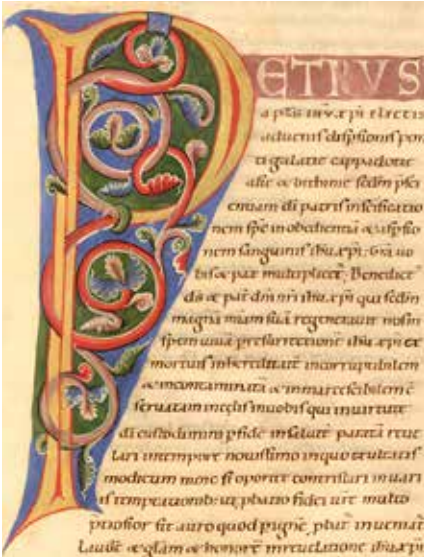 PETRUS
apłs ihū xpi electis
aduenis dispsionis pon
ti galatie cappadocie
asie & bithinie scdm psci
entiam di patris insčificatio
nem sps in obedientiā & aspsio
nem sanguinis ihu xpi; Gra uo
bis & pax multiplicet; Benedict'
ds & pat dni nri ihu xpi qui scdm
magnā miam suā regenerauit nos in
spem uiuā
mortuis inhereditatē incorruptibilem
& incontaminatā & inmarcescibilem
seruatam in celis in uobis qui in uirtute
di custodimini p fidē in salutē paratā reue
lari in tempore nouissimo in quo exultatis
modicum nunc si oportet contristari in uari
is temptationib; ut pbatio fidei ure multo
ptiosior sit auro quod p ignē pbat' inueniat'
laudē & glam & honorē in reuelatione ihu xpi